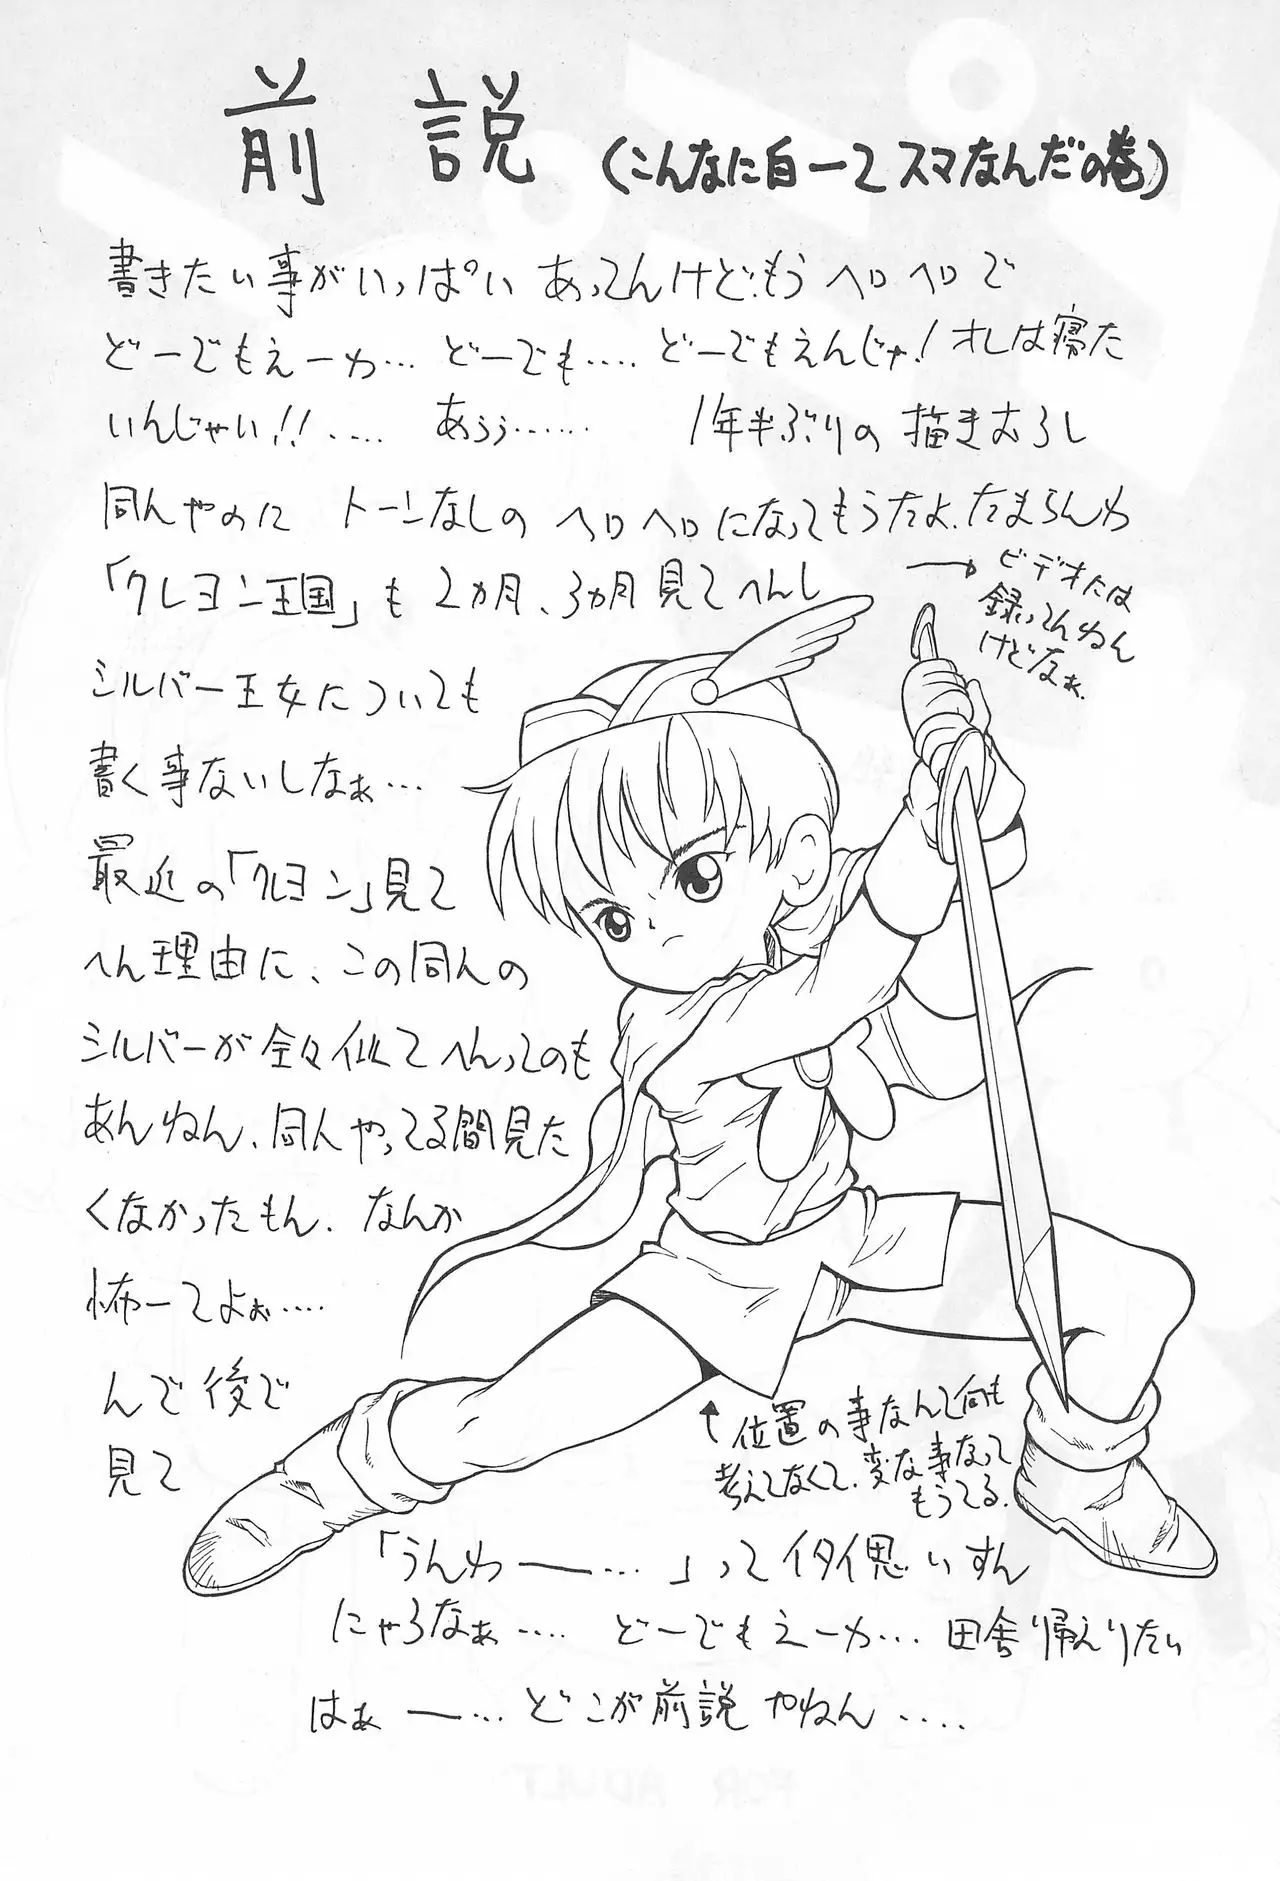 前説 (こんなに白ーてスマなんだの巻)
書きたい事がいっぱい あってんけど、もう ヘロヘロで
どーでもえーわ… どーでも…. どーでもえんじゃ! オレは寝た
いんじゃい!!‥‥ あぅぅ…… 1年半ぶりの描きおろし
同人やのに トーンなしの ヘロヘロになってもうたよ。たまらんわ
「クレヨン王国」も 2ヵ月、3ヵ月見てへんし
→ ビデオには
録ってんねん
けどなぁ。
シルバー王女についても
書く事ないしなぁ…
最近の「クレヨン」見て
へん理由に、この同人の
シルバーが全々似てへんってのも
あんねん、同人やってる間見た
くなかったもん。なんか
怖ーてよぉ‥‥
んで後で
見て
↑ 位置の事なんて何も
考えてなくて、変な事なって
もうてる。
「うんわー…」ってイタイ思いすん
にゃろなぁ‥‥ どーでもえーわ… 田舎帰えりたい
はぁー… どこが前説やねん‥‥
FOR ADULT